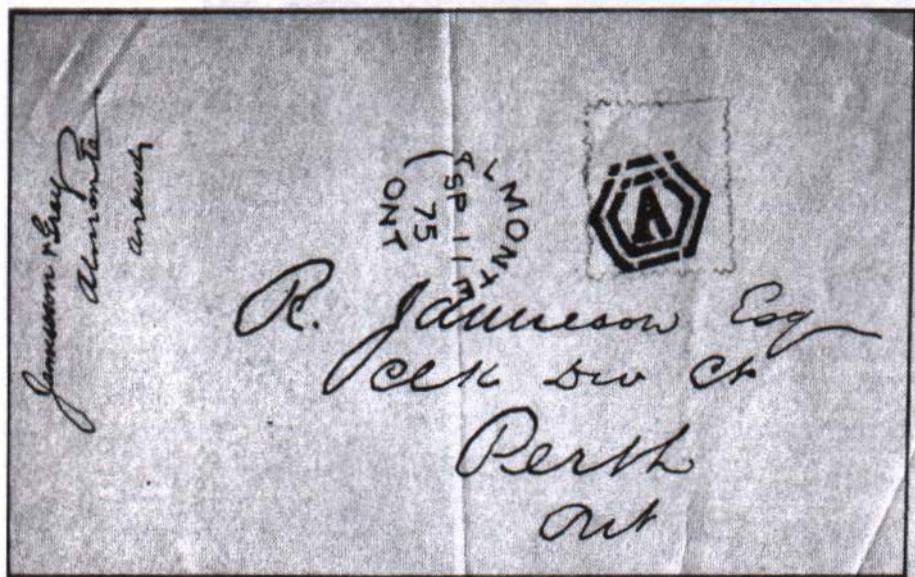 Jamieson & Greig
Almonte
answer
ALMONTE
SP 11
75
ONT
A
R. Jamieson Esq
Clk Div Ct
Perth
Ont